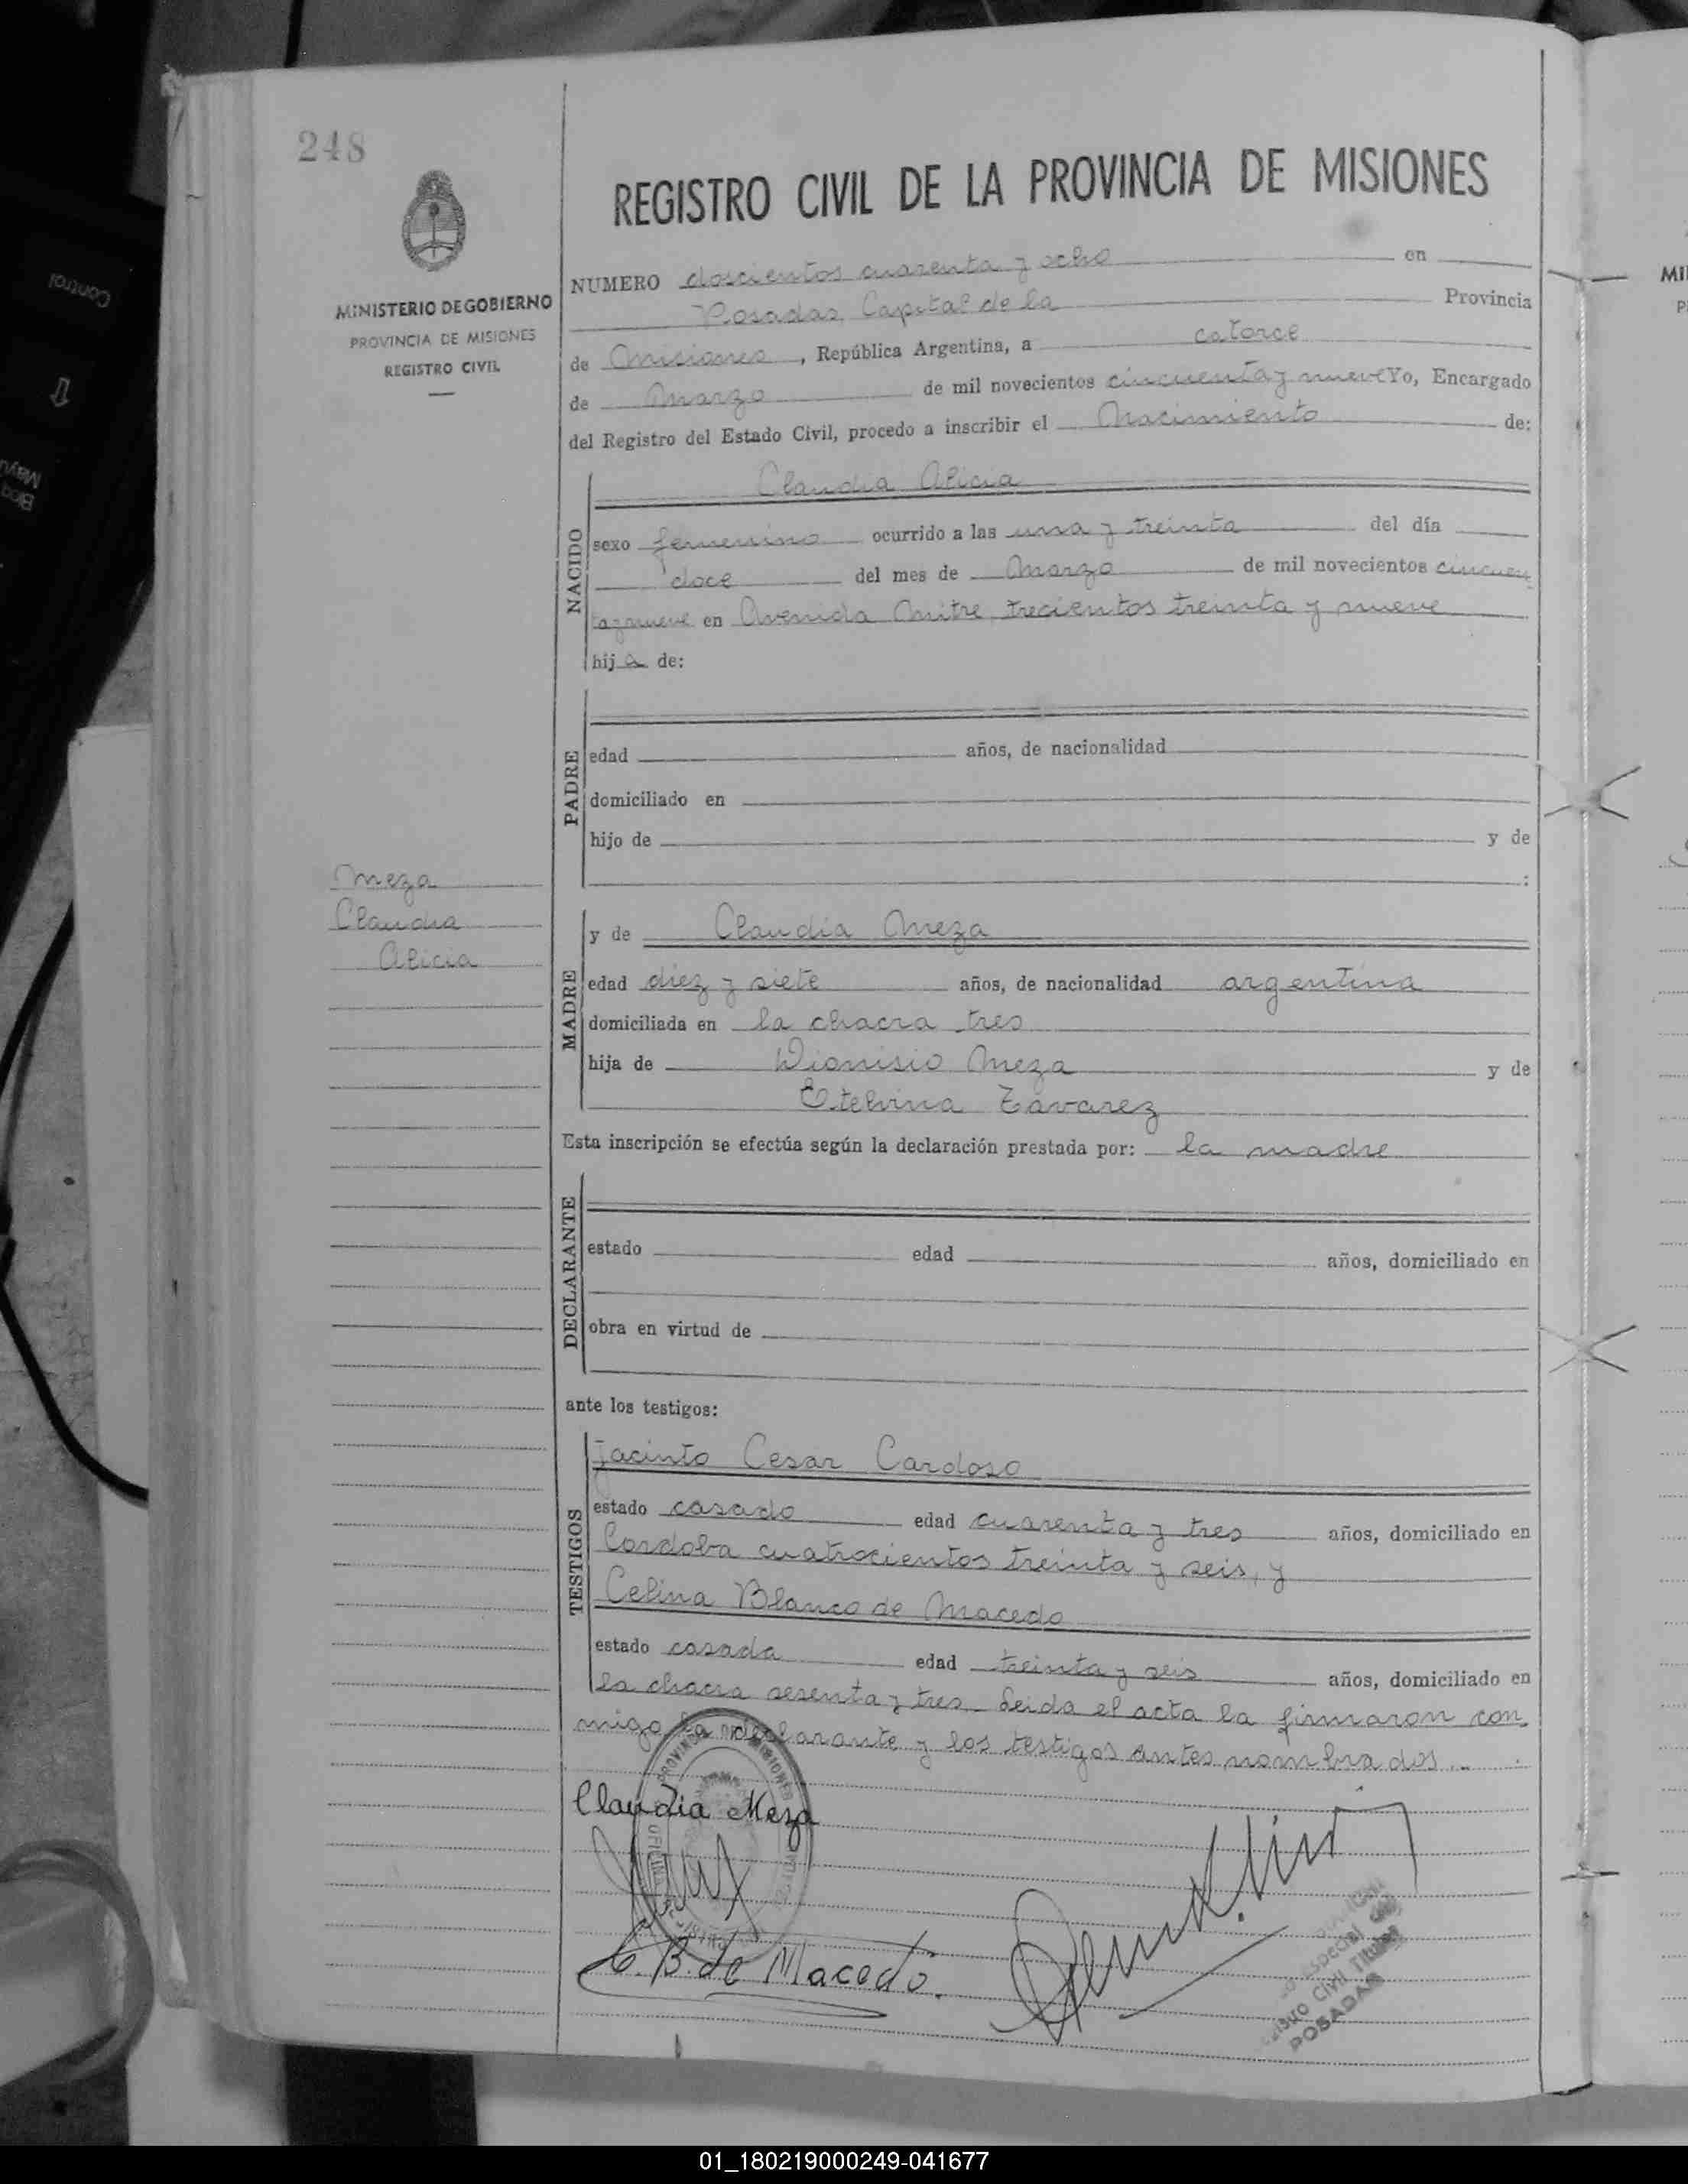 248
REGISTRO CIVIL DE LA PROVINCIA DE MISIONES
MINISTERIO DE GOBIERNO
PROVINCIA DE MISIONES
REGISTRO CIVIL
NUMERO doscientos cuarenta y ocho en
Posadas, Capital de la Provincia
de Misiones, República Argentina, a catorce
de Marzo de mil novecientos cincuenta y nueve Yo, Encargado
del Registro del Estado Civil, procedo a inscribir el Nacimiento de:
NACIDO
Claudia Alicia
sexo femenino ocurrido a las una y treinta del día
doce del mes de Marzo de mil novecientos cincuen
ta y nueve en Avenida Mitre trecientos treinta y nueve
hija de:
PADRE
edad años, de nacionalidad
domiciliado en
hijo de y de
:
Meza
Claudia
Alicia
MADRE
y de Claudia Meza
edad diez y siete años, de nacionalidad argentina
domiciliada en la chacra tres
hija de Dionisio Meza y de
Etelvina Tavarez
Esta inscripción se efectúa según la declaración prestada por: la madre
DECLARANTE
estado edad años, domiciliado en
obra en virtud de
ante los testigos:
TESTIGOS
Jacinto Cesar Cardoso
estado casado edad cuarenta y tres años, domiciliado en
Cordoba cuatrocientos treinta y seis, y
Celina Blanco de Macedo
estado casada edad treinta y seis años, domiciliado en
la chacra sesenta y tres. Leida el acta la firmaron con
migo la declarante y los testigos antes nombrados.
Claudia Meza
C. B. de Macedo.
CIVIL Titular
POSADAS
Control
Bloq
Mayú
01_180219000249-041677